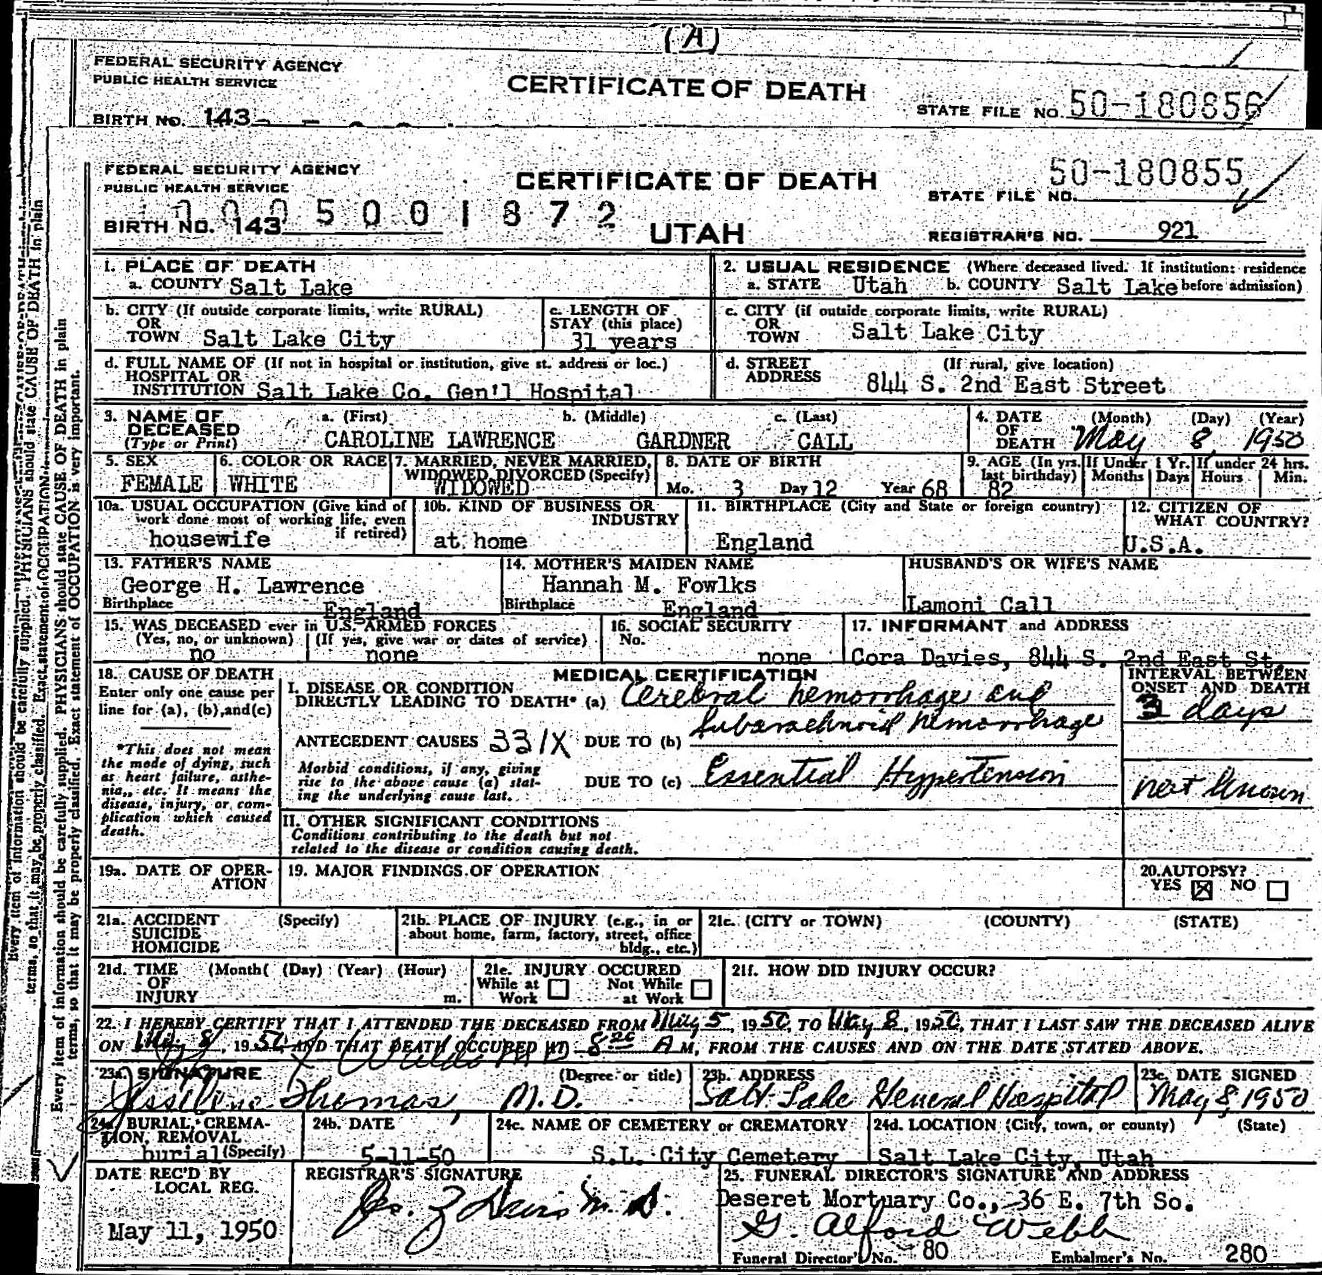 (A)
FEDERAL SECURITY AGENCY
PUBLIC HEALTH SERVICE
CERTIFICATE OF DEATH
STATE FILE NO. 50-180856
BIRTH NO. 143
FEDERAL SECURITY AGENCY
PUBLIC HEALTH SERVICE
CERTIFICATE OF DEATH
50-180855
STATE FILE NO.
BIRTH NO. 143 5001872
UTAH
REGISTRAR'S NO. 921
1. PLACE OF DEATH
a. COUNTY Salt Lake
2. USUAL RESIDENCE (Where deceased lived. If institution: residence
a. STATE Utah b. COUNTY Salt Lake before admission)
b. CITY (If outside corporate limits, write RURAL)
OR
TOWN Salt Lake City
c. LENGTH OF
STAY (this place)
31 years
c. CITY (if outside corporate limits, write RURAL)
OR
TOWN Salt Lake City
d. FULL NAME OF (If not in hospital or institution, give st. address or loc.)
HOSPITAL OR
INSTITUTION Salt Lake Co. Gen'l Hospital
d. STREET (If rural, give location)
ADDRESS 844 S. 2nd East Street
3. NAME OF a. (First) b. (Middle) c. (Last)
DECEASED
(Type or Print) CAROLINE LAWRENCE GARDNER CALL
4. DATE (Month) (Day) (Year)
OF
DEATH May 8, 1950
5. SEX
FEMALE
6. COLOR OR RACE
WHITE
7. MARRIED, NEVER MARRIED,
WIDOWED, DIVORCED (Specify)
WIDOWED
8. DATE OF BIRTH
Mo. 3 Day 12 Year 68
9. AGE (In yrs. last birthday)
82
If Under 1 Yr.
Months Days
If under 24 hrs.
Hours Min.
10a. USUAL OCCUPATION (Give kind of
work done most of working life, even
if retired)
housewife
10b. KIND OF BUSINESS OR
INDUSTRY
at home
11. BIRTHPLACE (City and State or foreign country)
England
12. CITIZEN OF
WHAT COUNTRY?
U.S.A.
13. FATHER'S NAME
George H. Lawrence
Birthplace England
14. MOTHER'S MAIDEN NAME
Hannah M. Fowlks
Birthplace England
HUSBAND'S OR WIFE'S NAME
Lamoni Call
15. WAS DECEASED ever in U.S. ARMED FORCES
(Yes, no, or unknown) (If yes, give war or dates of service)
no none
16. SOCIAL SECURITY
No.
none
17. INFORMANT and ADDRESS
Cora Davies, 844 S. 2nd East St.
18. CAUSE OF DEATH
Enter only one cause per
line for (a), (b), and (c)
*This does not mean
the mode of dying, such
as heart failure, asthe-
nia, etc. It means the
disease, injury, or com-
plication which caused
death.
MEDICAL CERTIFICATION
I. DISEASE OR CONDITION
DIRECTLY LEADING TO DEATH* (a) Cerebral hemorrhage and
Subarachnoid hemorrhage
ANTECEDENT CAUSES 331X DUE TO (b)
Morbid conditions, if any, giving
rise to the above cause (a) stat-
ing the underlying cause last.
DUE TO (c) Essential Hypertension
INTERVAL BETWEEN
ONSET AND DEATH
3 days
not known
II. OTHER SIGNIFICANT CONDITIONS
Conditions contributing to the death but not
related to the disease or condition causing death.
19a. DATE OF OPER-
ATION
19. MAJOR FINDINGS OF OPERATION
20. AUTOPSY?
YES ☒ NO ☐
21a. ACCIDENT (Specify)
SUICIDE
HOMICIDE
21b. PLACE OF INJURY (e.g., in or
about home, farm, factory, street, office
bldg., etc.)
21c. (CITY or TOWN) (COUNTY) (STATE)
21d. TIME (Month( (Day) (Year) (Hour)
OF
INJURY m.
21e. INJURY OCCURED
While at Work ☐ Not While at Work ☐
21f. HOW DID INJURY OCCUR?
22. I HEREBY CERTIFY THAT I ATTENDED THE DECEASED FROM May 5, 1950, TO May 8, 1950, THAT I LAST SAW THE DECEASED ALIVE
ON May 8, 1950 AND THAT DEATH OCCURED AT 8 20 A M, FROM THE CAUSES AND ON THE DATE STATED ABOVE.
23a. SIGNATURE (Degree or title)
Thomas, M.D.
23b. ADDRESS
Salt Lake General Hospital
23c. DATE SIGNED
May 8, 1950
24a. BURIAL, CREMA-
TION, REMOVAL
burial (Specify)
24b. DATE
5-11-50
24c. NAME OF CEMETERY or CREMATORY
S.L. City Cemetery
24d. LOCATION (City, town, or county) (State)
Salt Lake City, Utah
DATE REC'D BY
LOCAL REG.
May 11, 1950
REGISTRAR'S SIGNATURE
M.D.
25. FUNERAL DIRECTOR'S SIGNATURE AND ADDRESS
Deseret Mortuary Co., 36 E. 7th So.
G. Alford Webb
Funeral Director's No. 80 Embalmer's No. 280
Every item of information should be carefully supplied. PHYSICIANS should state CAUSE OF DEATH in plain
terms, so that it may be properly classified. Exact statement of OCCUPATION is very important.
Every item of information should be carefully supplied. PHYSICIANS should state CAUSE OF DEATH in plain
terms, so that it may be properly classified. Exact statement of OCCUPATION